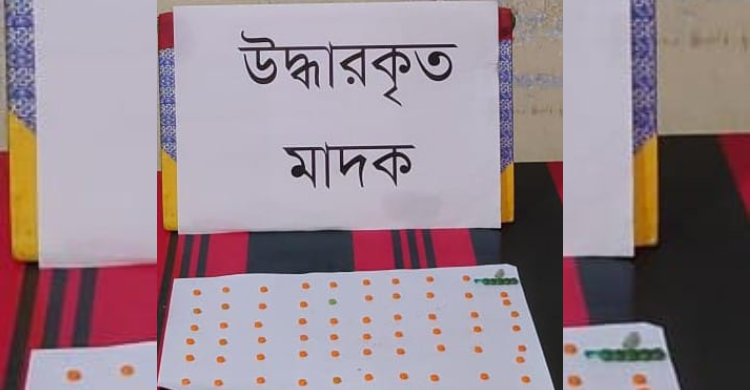 উদ্ধারকৃত
মাদক